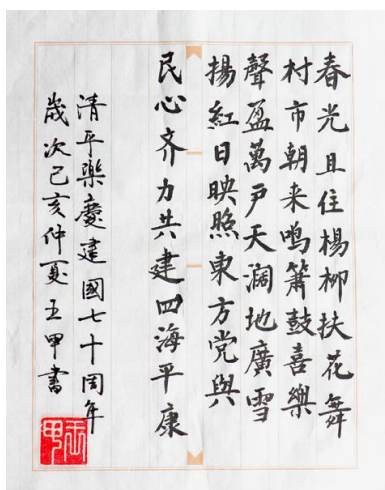 春光且住楊柳扶花舞
村市朝来鸣簫鼓喜樂
聲盈萬户天濶地廣雪
揚紅日映照東方党與
民心齐力共建四海平康
清平樂慶建國七十周年
歲次己亥仲夏王甲書